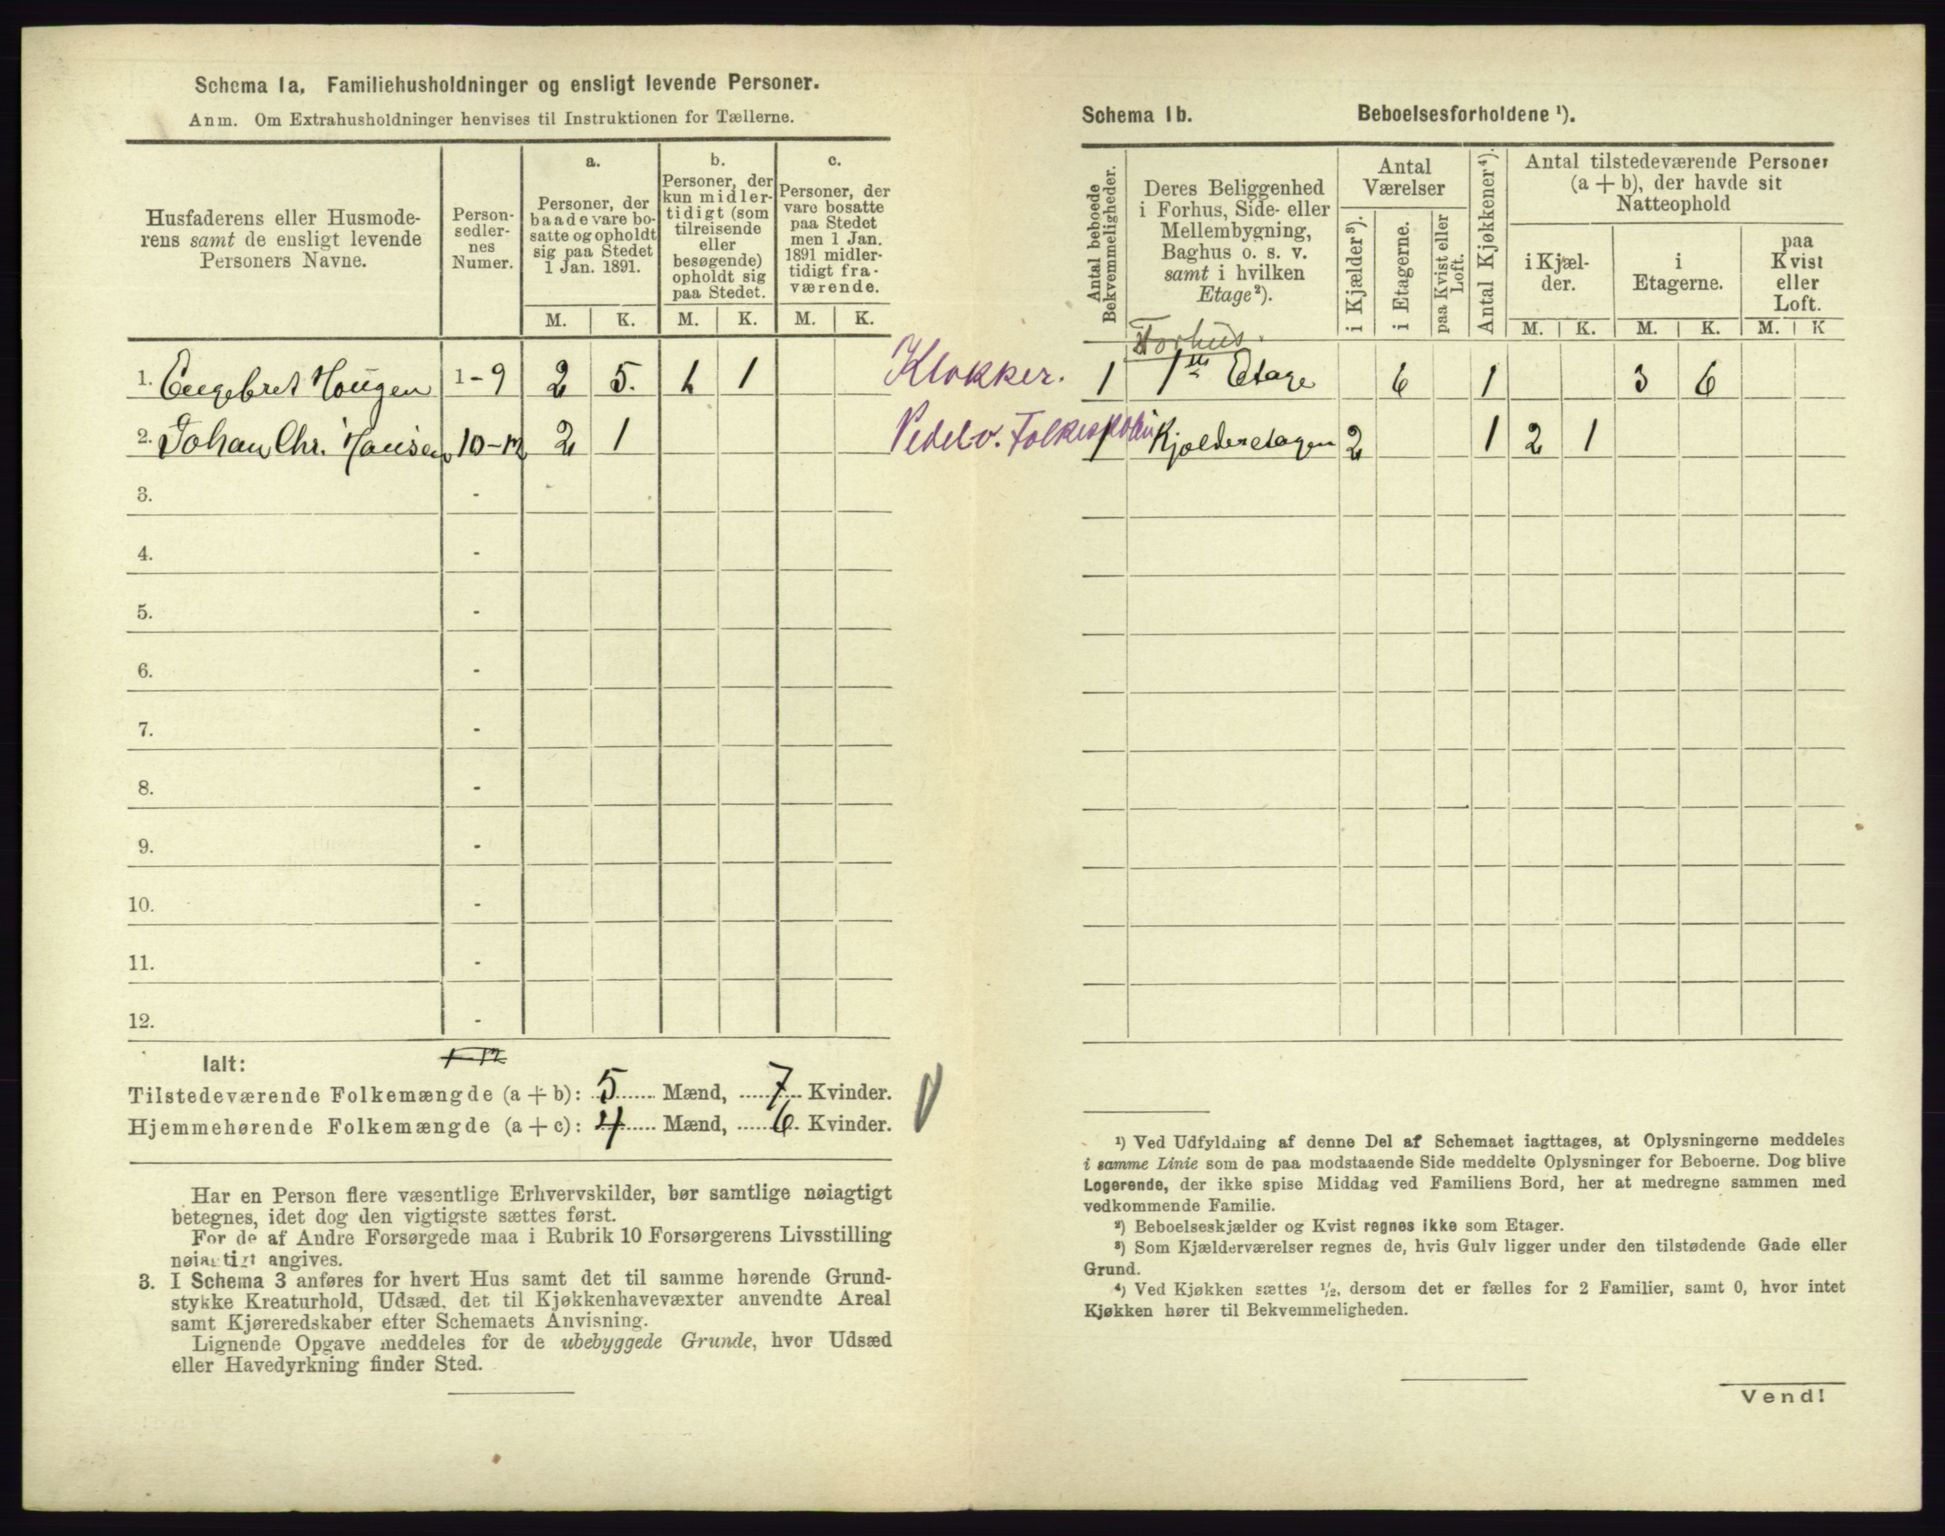 Schema 1a, Familiehusholdninger og ensligt levende Personer.
Anm. Om Extrahusholdninger henvises til Instruktionen for Tællerne.
Husfaderens eller Husmode-
rens samt de ensligt levende
Personers Navne.
Person-
sedler-
nes
Numer.
a.
Personer, der
baade vare bo-
satte og opholdt
sig paa Stedet
1 Jan. 1891.
b.
Personer, der
kun midler-
tidigt (som
tilreisende
eller
besøgende)
opholdt sig
paa Stedet.
c.
Personer, der
vare bosatte
paa Stedet
men 1 Jan.
1891 midler-
tidigt fra-
værende.
M. K. M. K. M. K.
1. Engebret Hougen 1-9 2 5. 1 1
2. Johan Chr. Hansen 10-12 2 1
3. -
4. -
5. -
6. -
7. -
8. -
9. -
10. -
11. -
12. -
Ialt: 1-12
Tilstedeværende Folkemængde (a + b): 5 Mænd, 7 Kvinder.
Hjemmehørende Folkemængde (a + c): 4 Mænd, 6 Kvinder.
Har en Person flere væsentlige Erhvervskilder, bør samtlige nøiagtigt
betegnes, idet dog den vigtigste sættes først.
For de af Andre Forsørgede maa i Rubrik 10 Forsørgerens Livsstilling
nøiagtigt angives.
3. I Schema 3 anføres for hvert Hus samt det til samme hørende Grund-
stykke Kreaturhold, Udsæd, det til Kjøkkenhavevæxter anvendte Areal
samt Kjøreredskaber efter Schemaets Anvisning.
Lignende Opgave meddeles for de ubebyggede Grunde, hvor Udsæd
eller Havedyrkning finder Sted.
Schema 1b. Beboelsesforholdene ¹).
Antal beboede
Bekvemmeligheder.
Deres Beliggenhed
i Forhus, Side- eller
Mellembygning,
Baghus o. s. v.
samt i hvilken
Etage²).
Antal
Værelser
i Kjælder³).
i Etagerne.
paa Kvist eller
Loft.
Antal Kjøkkener⁴).
Antal tilstedeværende Personer
(a + b), der havde sit
Natteophold
i Kjæl-
der.
i
Etagerne.
paa
Kvist
eller
Loft.
M. K. M. K. M. K
Forhus.
Klokker. 1 1ste Etage 6 1 3 6
Pedel v. Folkeskolen 1 Kjælderetagen 2 1 2 1
¹) Ved Udfyldning af denne Del af Schemaet iagttages, at Oplysningerne meddeles
i samme Linie som de paa modstaaende Side meddelte Oplysninger for Beboerne. Dog blive
Logerende, der ikke spise Middag ved Familiens Bord, her at medregne sammen med
vedkommende Familie.
²) Beboelseskjælder og Kvist regnes ikke som Etager.
³) Som Kjælderværelser regnes de, hvis Gulv ligger under den tilstødende Gade eller
Grund.
⁴) Ved Kjøkken sættes ½, dersom det er fælles for 2 Familier, samt 0, hvor intet
Kjøkken hører til Bekvemmeligheden.
Vend!